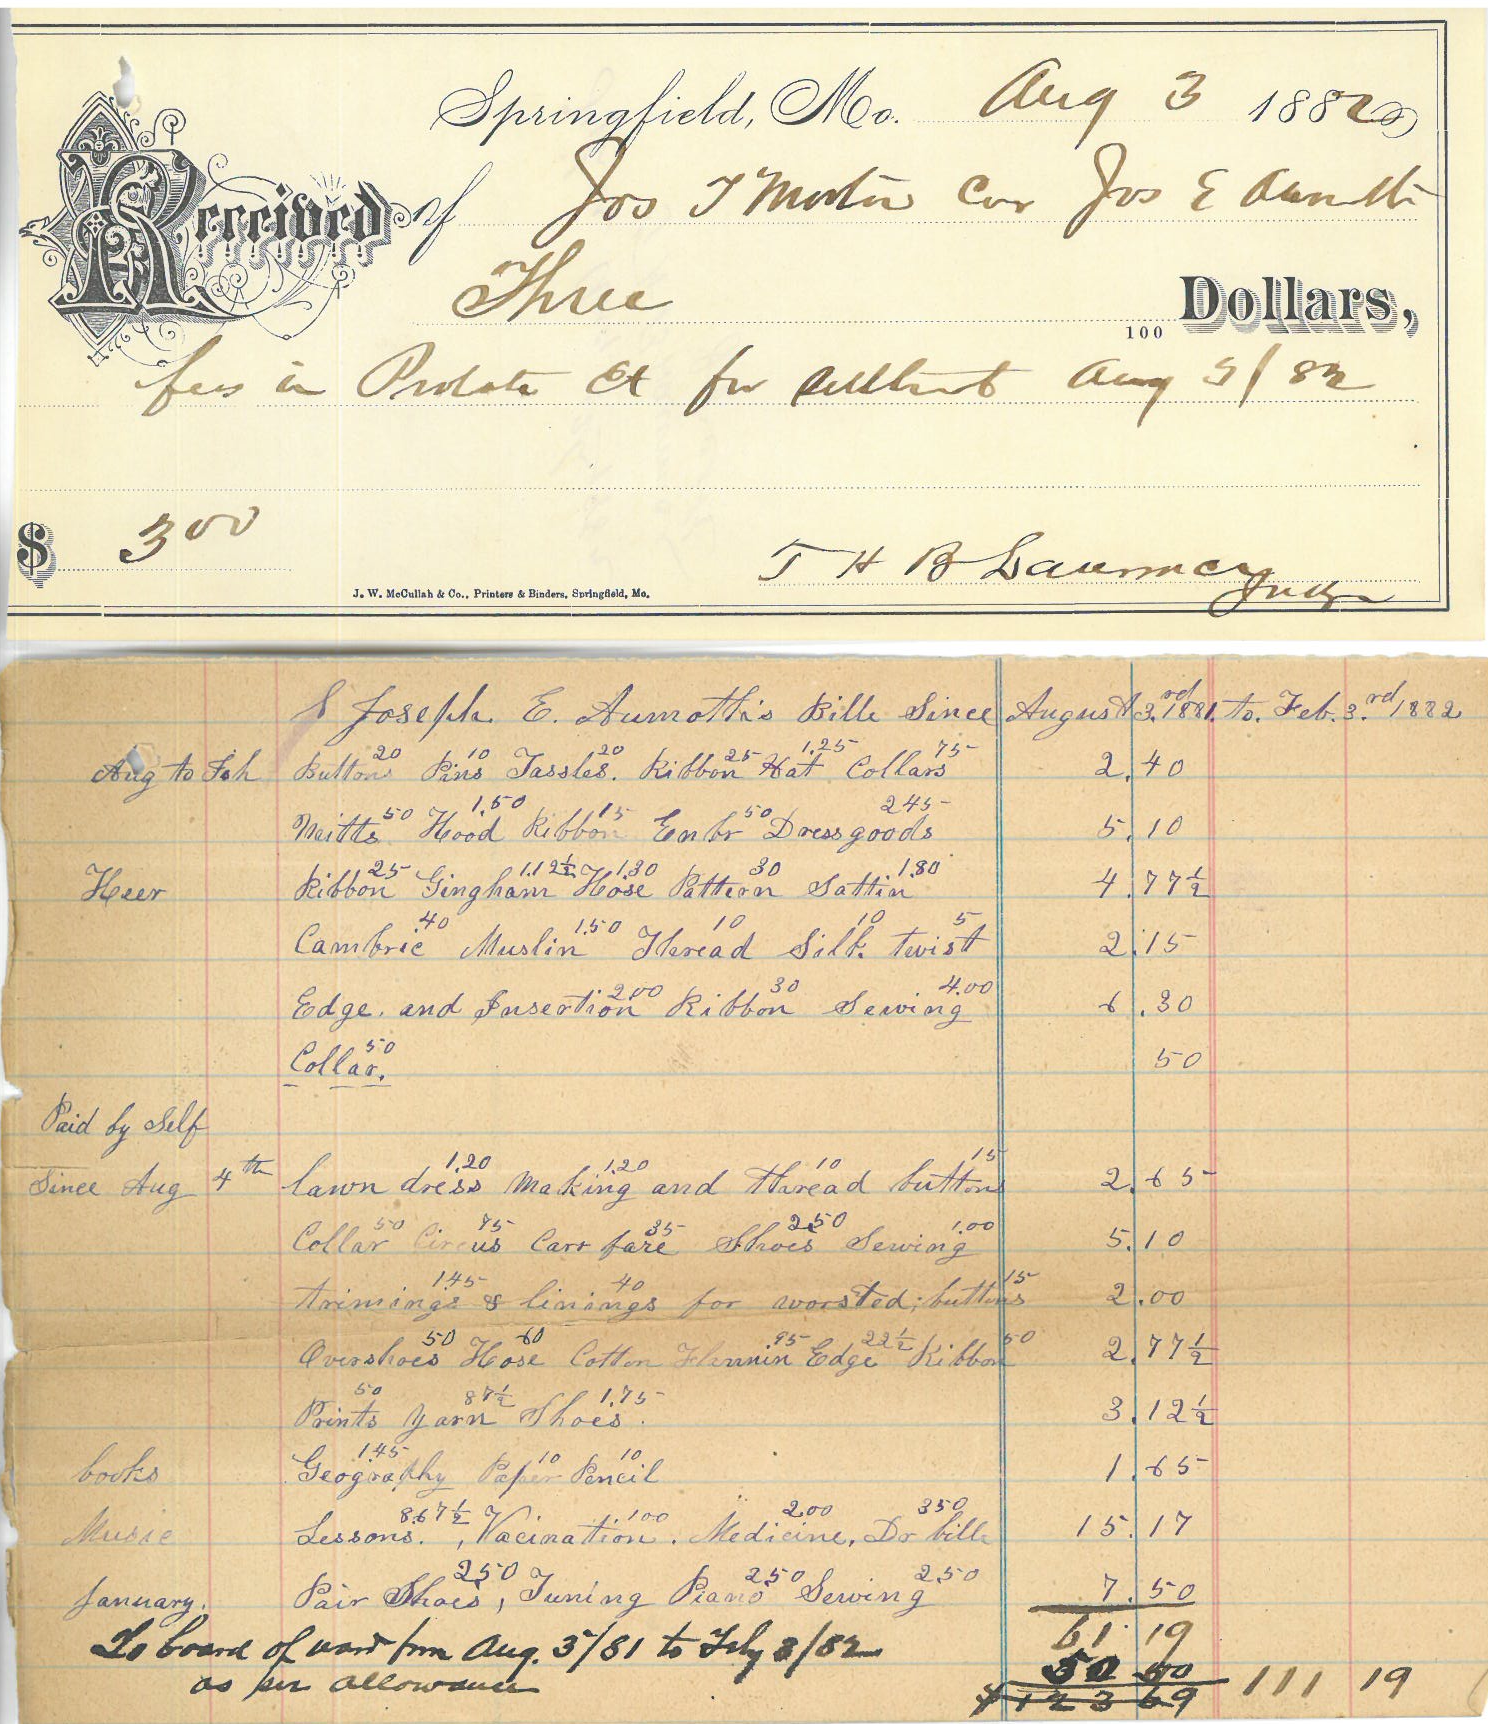 Springfield, Mo. Aug 3 1882
Received of Jos T Morton Cur Jos E Aumoth
Three 100 Dollars,
fees in Probate Ct for settlement Aug 3/82
$ 3 00
T H B Lawrence
Judge
J. W. McCullah & Co., Printers & Binders, Springfield, Mo.
Joseph. E. Aumoth's Bill Since August 3.rd 1881. to. Feb. 3.rd 1882
20 10 20 25 1.25 75
Aug to Feb Buttons Pins Tassles. Ribbon Hat Collars 2.40
50 1.50 15 50 245
Mitts Hood Ribbon Enbr Dress goods 5.10
25 1.12½ 1.30 30 1.80
Heer Ribbon Gingham Hose Pattern Sattin 4.77½
.40 1.50 10 10 5
Cambric Muslin Thread Silk twist 2.15
2.00 30 4.00
Edge. and Insertion Ribbon Sewing 6.30
50
Collar. 50
Paid by Self
1.20 1.20 10 15
Since Aug 4th lawn dress making and thread buttons 2.65
50 75 35 2.50 1.00
Collar Circus Carr fare Shoes Sewing 5.10
1.45 40 15
trimings & linings for worsted; buttons 2.00
50 60 95 22½ 50
Overshoes Hose Cotton Flennin Edge Ribbon 2.77½
50 87½ 1.75
Prints Yarn Shoes. 3.12½
1.45 10 10
books Geography Paper Pencil 1.65
8.67½ 1.00 2.00 3.50
Music Lessons. , Vacination. Medicine, Dr bill 15.17
2.50 2.50 2.50
January. Pair Shoes, Tuning Piano Sewing 7.50
61 19
To board of ward from Aug. 3/81 to Feby 3/82 50 00
as per allowance 123 69 111 19